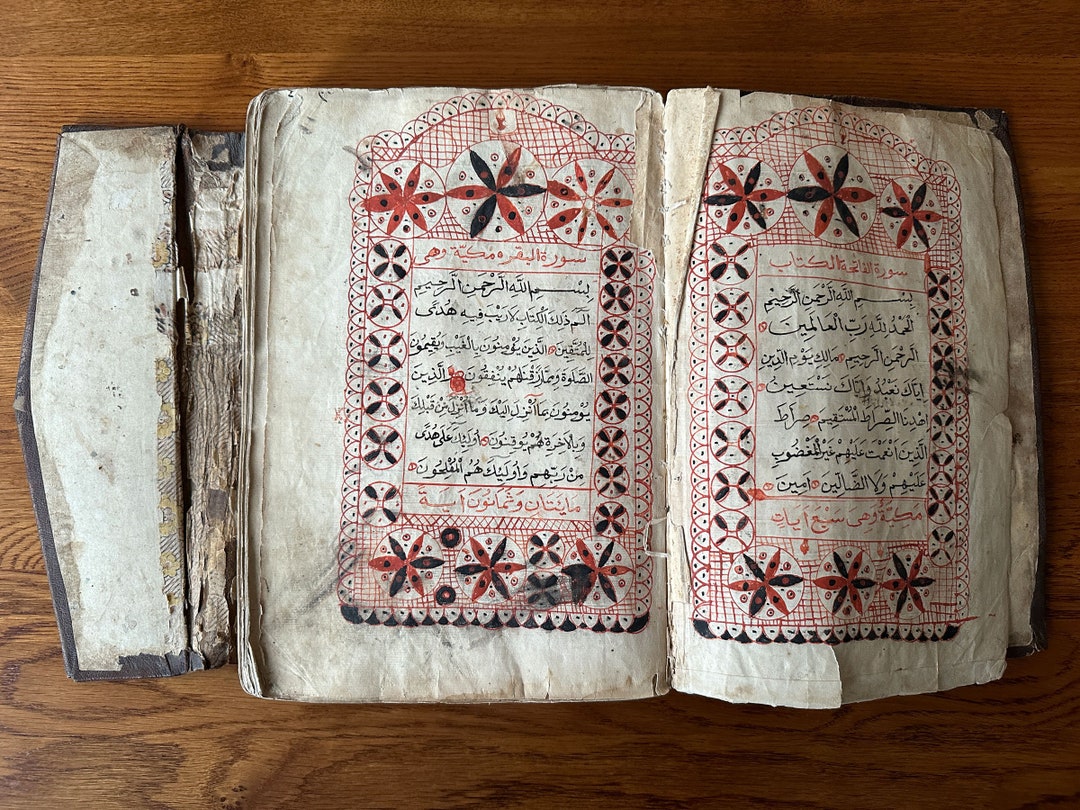 سورة الفاتحة الكتاب
بِسْمِ اللَّهِ الرَّحْمَنِ الرَّحِيمِ
الْحَمْدُ لِلَّهِ رَبِّ الْعَالَمِينَ
الرَّحْمَنِ الرَّحِيمِ مَالِكِ يَوْمِ الدِّينِ
إِيَّاكَ نَعْبُدُ وَإِيَّاكَ نَسْتَعِينُ
اهْدِنَا الصِّرَاطَ الْمُسْتَقِيمَ صِرَاطَ
الَّذِينَ أَنْعَمْتَ عَلَيْهِمْ غَيْرِ الْمَغْضُوبِ
عَلَيْهِمْ وَلَا الضَّالِّينَ آمِينَ
مكية وهي سبع آيات
سورة البقره مكية وهي
بِسْمِ اللَّهِ الرَّحْمَنِ الرَّحِيمِ
الم ذَلِكَ الْكِتَابُ لَا رَيْبَ فِيهِ هُدًى
لِلْمُتَّقِينَ الَّذِينَ يُؤْمِنُونَ بِالْغَيْبِ وَيُقِيمُونَ
الصَّلَوةَ وَمِمَّا رَزَقْنَاهُمْ يُنْفِقُونَ وَالَّذِينَ
يُؤْمِنُونَ بِمَا أُنْزِلَ إِلَيْكَ وَمَا أُنْزِلَ مِنْ قَبْلِكَ
وَبِالْآخِرَةِ هُمْ يُوقِنُونَ أُولَئِكَ عَلَى هُدًى
مِنْ رَبِّهِمْ وَأُولَئِكَ هُمُ الْمُفْلِحُونَ
مائتان وثمانون آية